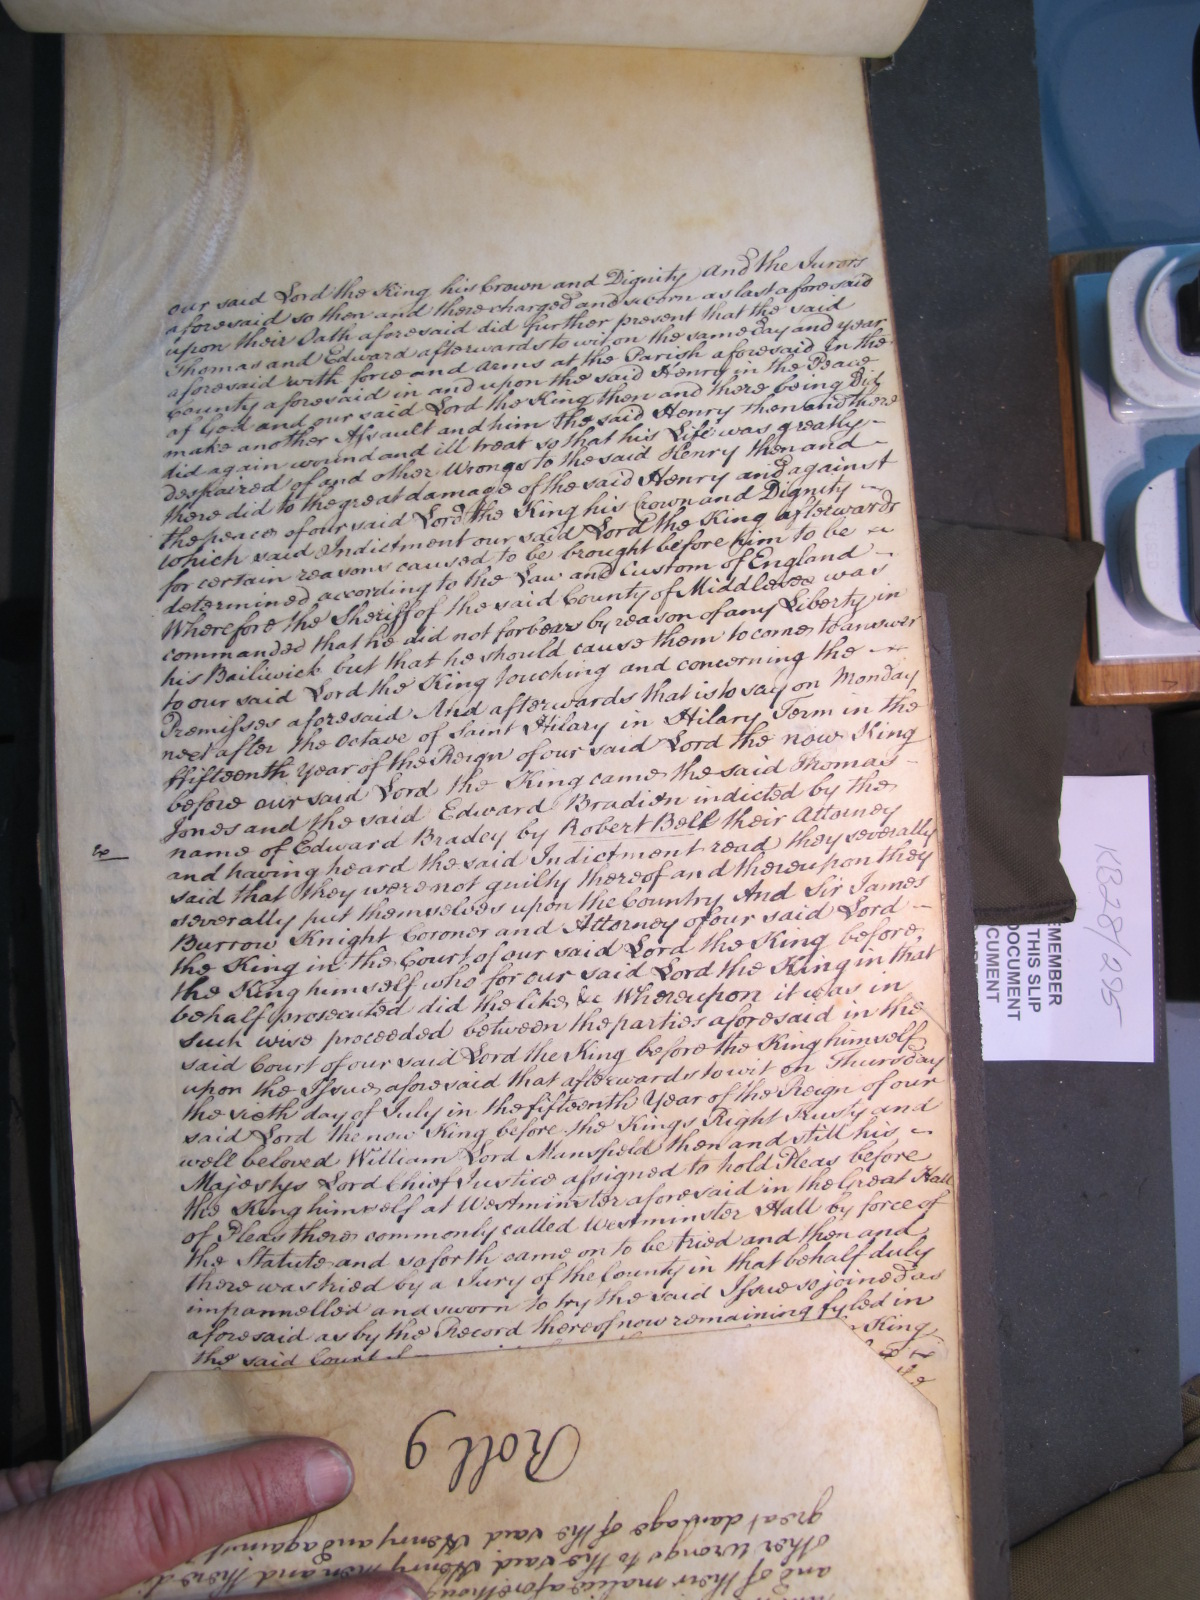 our said Lord the King his Crown and Dignity And the Jurors
aforesaid so then and there charged and sworn as last aforesaid
upon their Oath aforesaid did further present that the said
Thomas and Edward afterwards to wit on the same day and year
aforesaid with force and Arms at the Parish aforesaid in the
County aforesaid in and upon the said Henry in the Peace
of God and our said Lord the King then and there being Did
make another Assault and him the said Henry then and there
did again wound and ill treat so that his Life was greatly
despaired of and other Wrongs to the said Henry then and
there did to the great damage of the said Henry and against
the peace of our said Lord the King his Crown and Dignity
which said Indictment our said Lord the King afterwards
for certain reasons caused to be brought before him to be
determined according to the Law and Custom of England
Wherefore the Sheriff of the said County of Middlesex was
commanded that he did not forbear by reason of any Liberty in
his Bailiwick but that he should cause them to come to answer
to our said Lord the King touching and concerning the
Premisses aforesaid And afterwards that is to say on Monday
next after the Octave of Saint Hilary in Hilary Term in the
ffifteenth Year of the Reign of our said Lord the now King
before our said Lord the King came the said Thomas
Jones and the said Edward Bradien indicted by the
name of Edward Bradey by Robert Belt their Attorney
and having heard the said Indictment read they severally
said that they were not guilty thereof and thereupon they
severally put themselves upon the Country And Sir James
Burrow Knight Coroner and Attorney of our said Lord
the King in the Court of our said Lord the King before
the King himself who for our said Lord the King in that
behalf prosecuted did the like &c Whereupon it was in
such wise proceeded between the parties aforesaid in the
said Court of our said Lord the King before the King himself
upon the Issue aforesaid that afterwards to wit on Thursday
the sixth day of July in the fifteenth Year of the Reign of our
said Lord the now King before the Kings Right Trusty and
well beloved William Lord Mansfield then and still his
Majestys Lord Chief Justice assigned to hold Pleas before
the King himself at Westminster aforesaid in the Great Hall
of Pleas there commonly called Westminster Hall by force of
the Statute and so forth came on to be tried and then and
there was tried by a Jury of the County in that behalf duly
impannelled and sworn to try the said Issue so joined as
aforesaid as by the Record thereof now remaining fyled in
the said Court
King
Roll 9
great damage of the said Henry and against
other wrongs to the said Henry then and there di
and of their malice aforethoug
KB28/295
EMEMBER
THIS SLIP
DOCUMENT
CUMENT